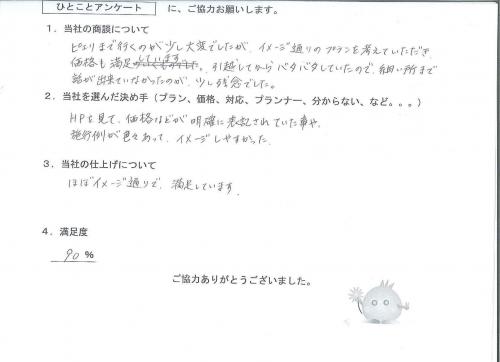 ひとことアンケート に、ご協力お願いします。
1．当社の商談について
ピエリまで行くのが少し大変でしたが、イメージ通りのプランを考えていただき、
価格も満足しています。引越してからバタバタしていたので、細い所まで
話が出来ていなかったのが、少し残念でした。
2．当社を選んだ決め手（プラン、価格、対応、プランナー、分からない、など。。。）
HPを見て、価格などが明確に表記されていた事や、
施行例が色々あって、イメージしやすかった。
3．当社の仕上げについて
ほぼイメージ通りで、満足しています。
4．満足度
90 %
ご協力ありがとうございました。